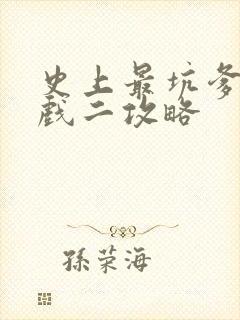 史上最坑爹
戲二攻略
孫荣海